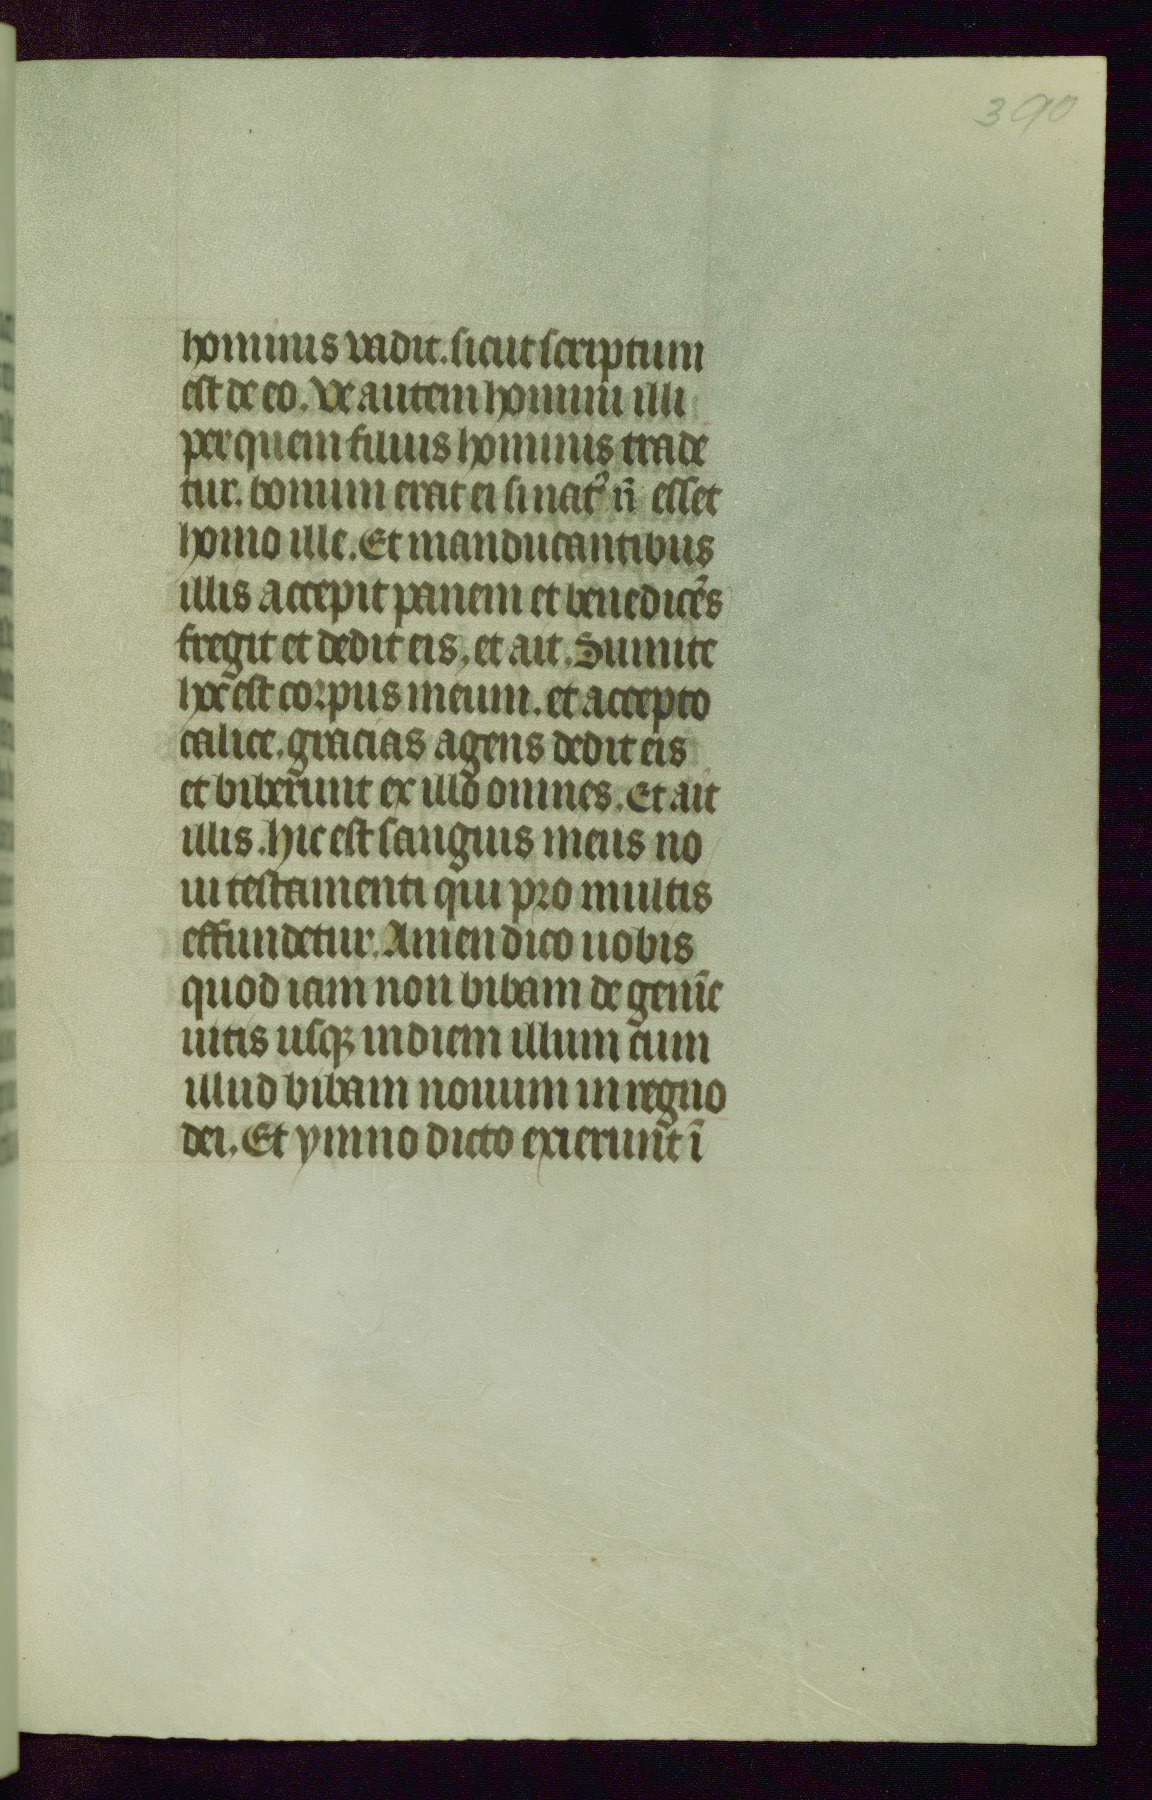 390
hominis vadit. sicut scriptum
est de eo. Ve autem homini illi
per quem filius hominis trade
tur. bonum erat ei si natꝰ n̄ esset
homo ille. Et manducantibus
illis accepit panem et benedicēs
fregit et dedit eis, et ait. Sumite
hoc est corpus meum. et accepto
calice. gracias agens dedit eis
et biberunt ex illo omnes. Et ait
illis. hic est sanguis meus no
ui testamenti qui pro multis
effundetur. Amen dico uobis
quod iam non bibam de genīe
uitis usqꝫ in diem illum cum
illud bibam nouum in regno
dei. Et ymno dicto exierunt ī